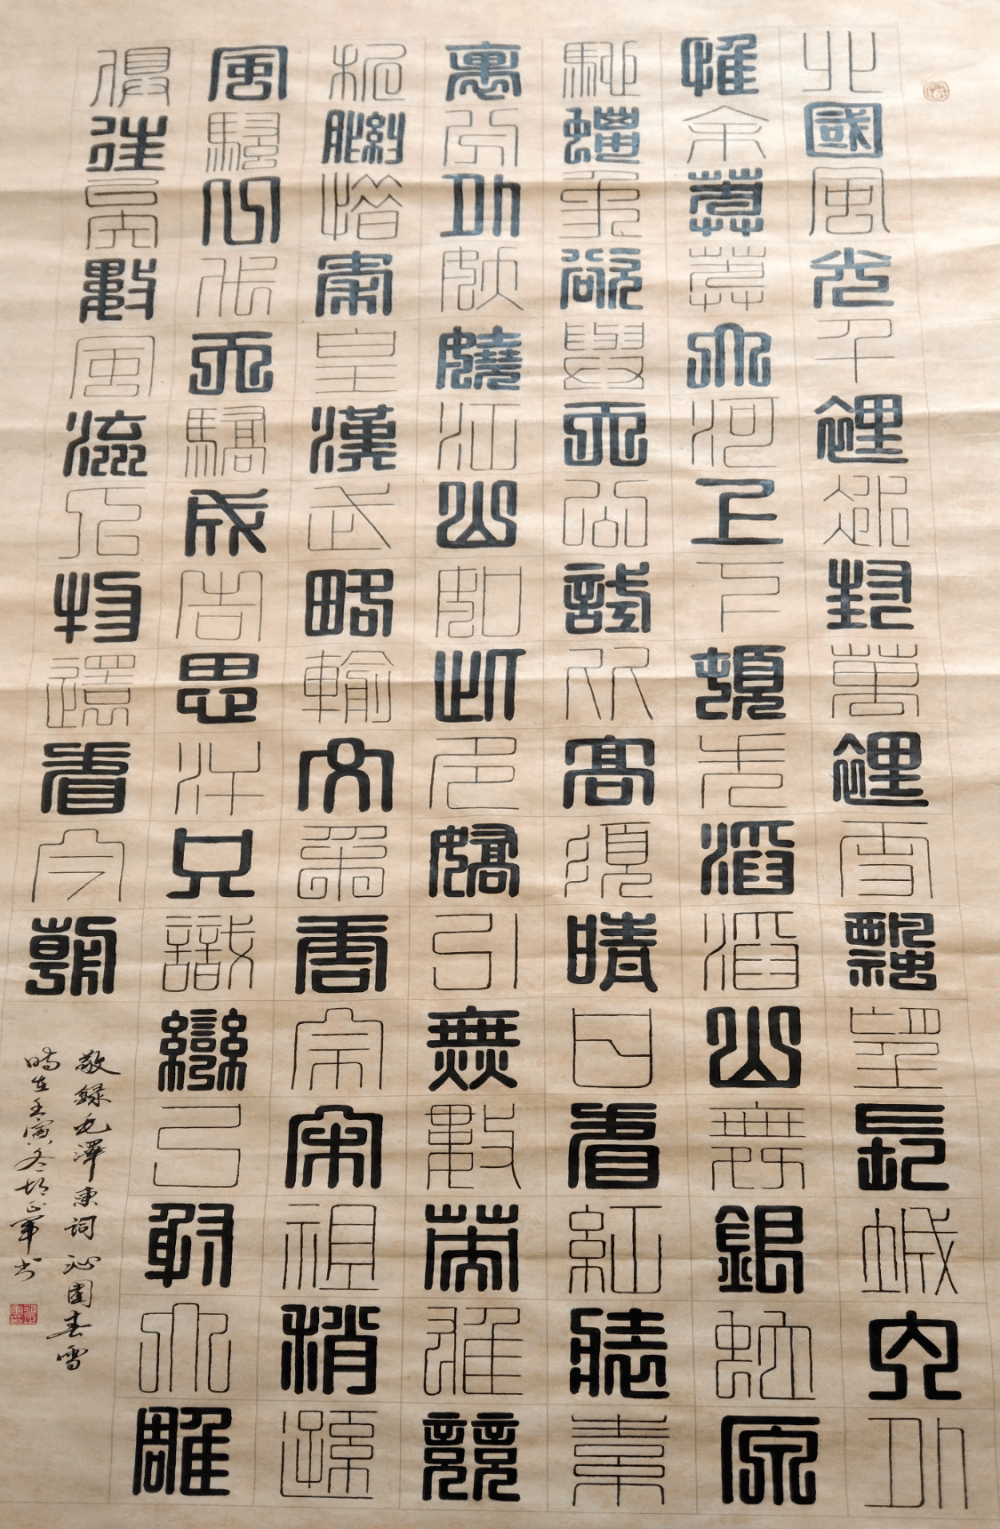 北國風光千裡冰封萬裡雪飄望長城內外
惟余莽莽大河上下頓失滔滔山舞銀蛇原
馳蠟象欲與天公試比高須晴日看紅裝素
裹分外妖嬈江山如此多嬌引無數英雄競
折腰惜秦皇漢武略輸文采唐宗宋祖稍遜
風騷一代天驕成吉思汗只識彎弓射大雕
俱往矣數風流人物還看今朝
敬録毛澤東詞沁園春雪
時在壬寅冬胡正軍书